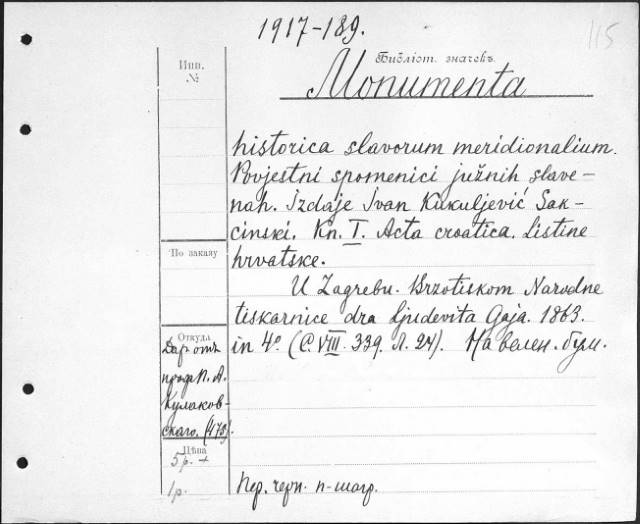 1917-189.
115
Инв.
№
Библіот. значекъ
Monumenta
historica slavorum meridionalium.
Povjestni spomenici južnih slave-
nah. Izdaje Ivan Kukuljević Sak-
cinski. Kn. I. Acta croatica. Listine
hrvatske.
По заказу
U Zagrebu. Brzotiskom Narodne
tiskarnice dra Ljudevita Gaja. 1863.
in 4º (C. VIII. 339. Л. 24). На велен. бум.
Откуда
Даръ отъ
проф. П. А.
Кулаков-
скаго. (173).
Цѣна
5 р. +
1 р.
Пер. черн. п-шагр.